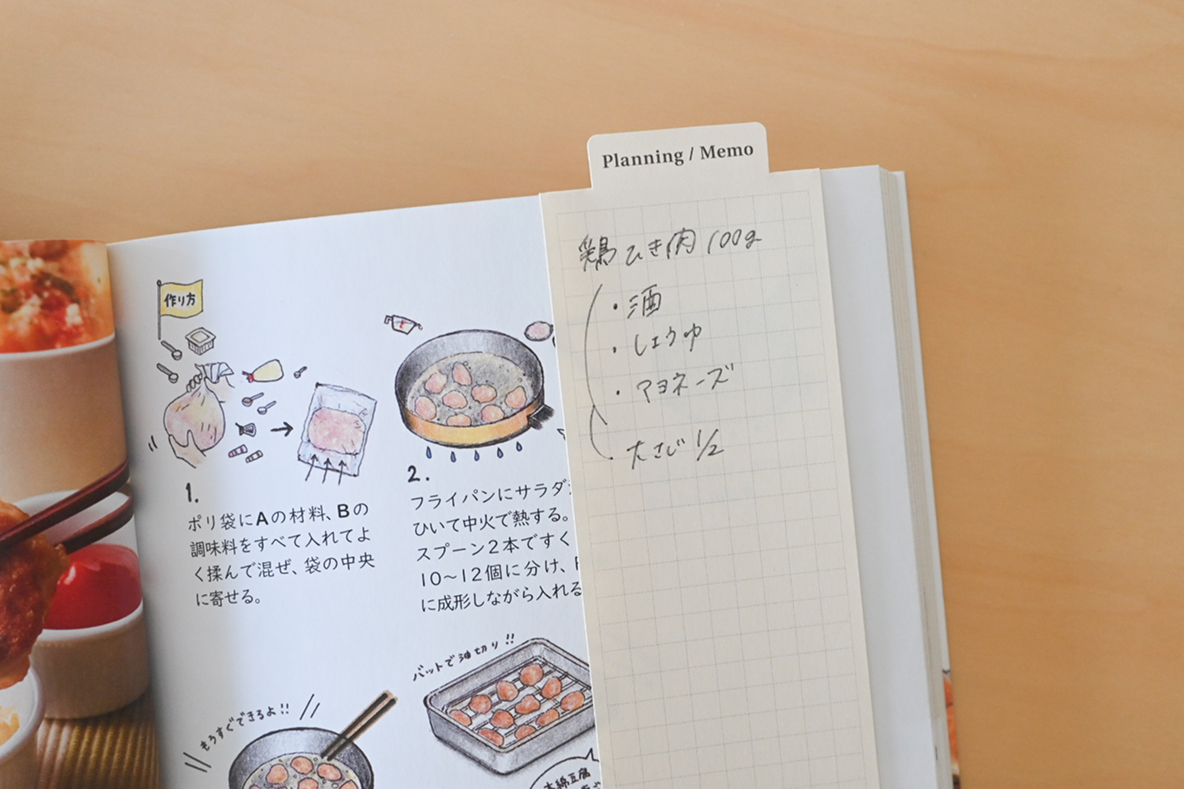 Planning / Memo
鶏ひき肉 100g
・酒
・しょうゆ
・マヨネーズ
・大さじ 1/2
作り方
1.
ポリ袋にAの材料、Bの
調味料をすべて入れてよ
く揉んで混ぜ、袋の中央
に寄せる。
2.
フライパンにサラダ
ひいて中火で熱する。
スプーン2本ですく
10〜12個に分け、
に成形しながら入れる
バットで油切り!!
もうすぐできるよ!!
木綿豆腐